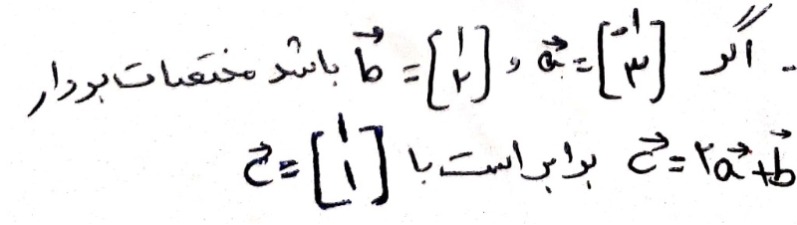 اگر a⃗ = [-۱ ۳] و b⃗ = [۱ ۲] باشد مختصات بردار
c⃗ = ۲a⃗ + b⃗ برابر است با c⃗ = [۱ ۱]